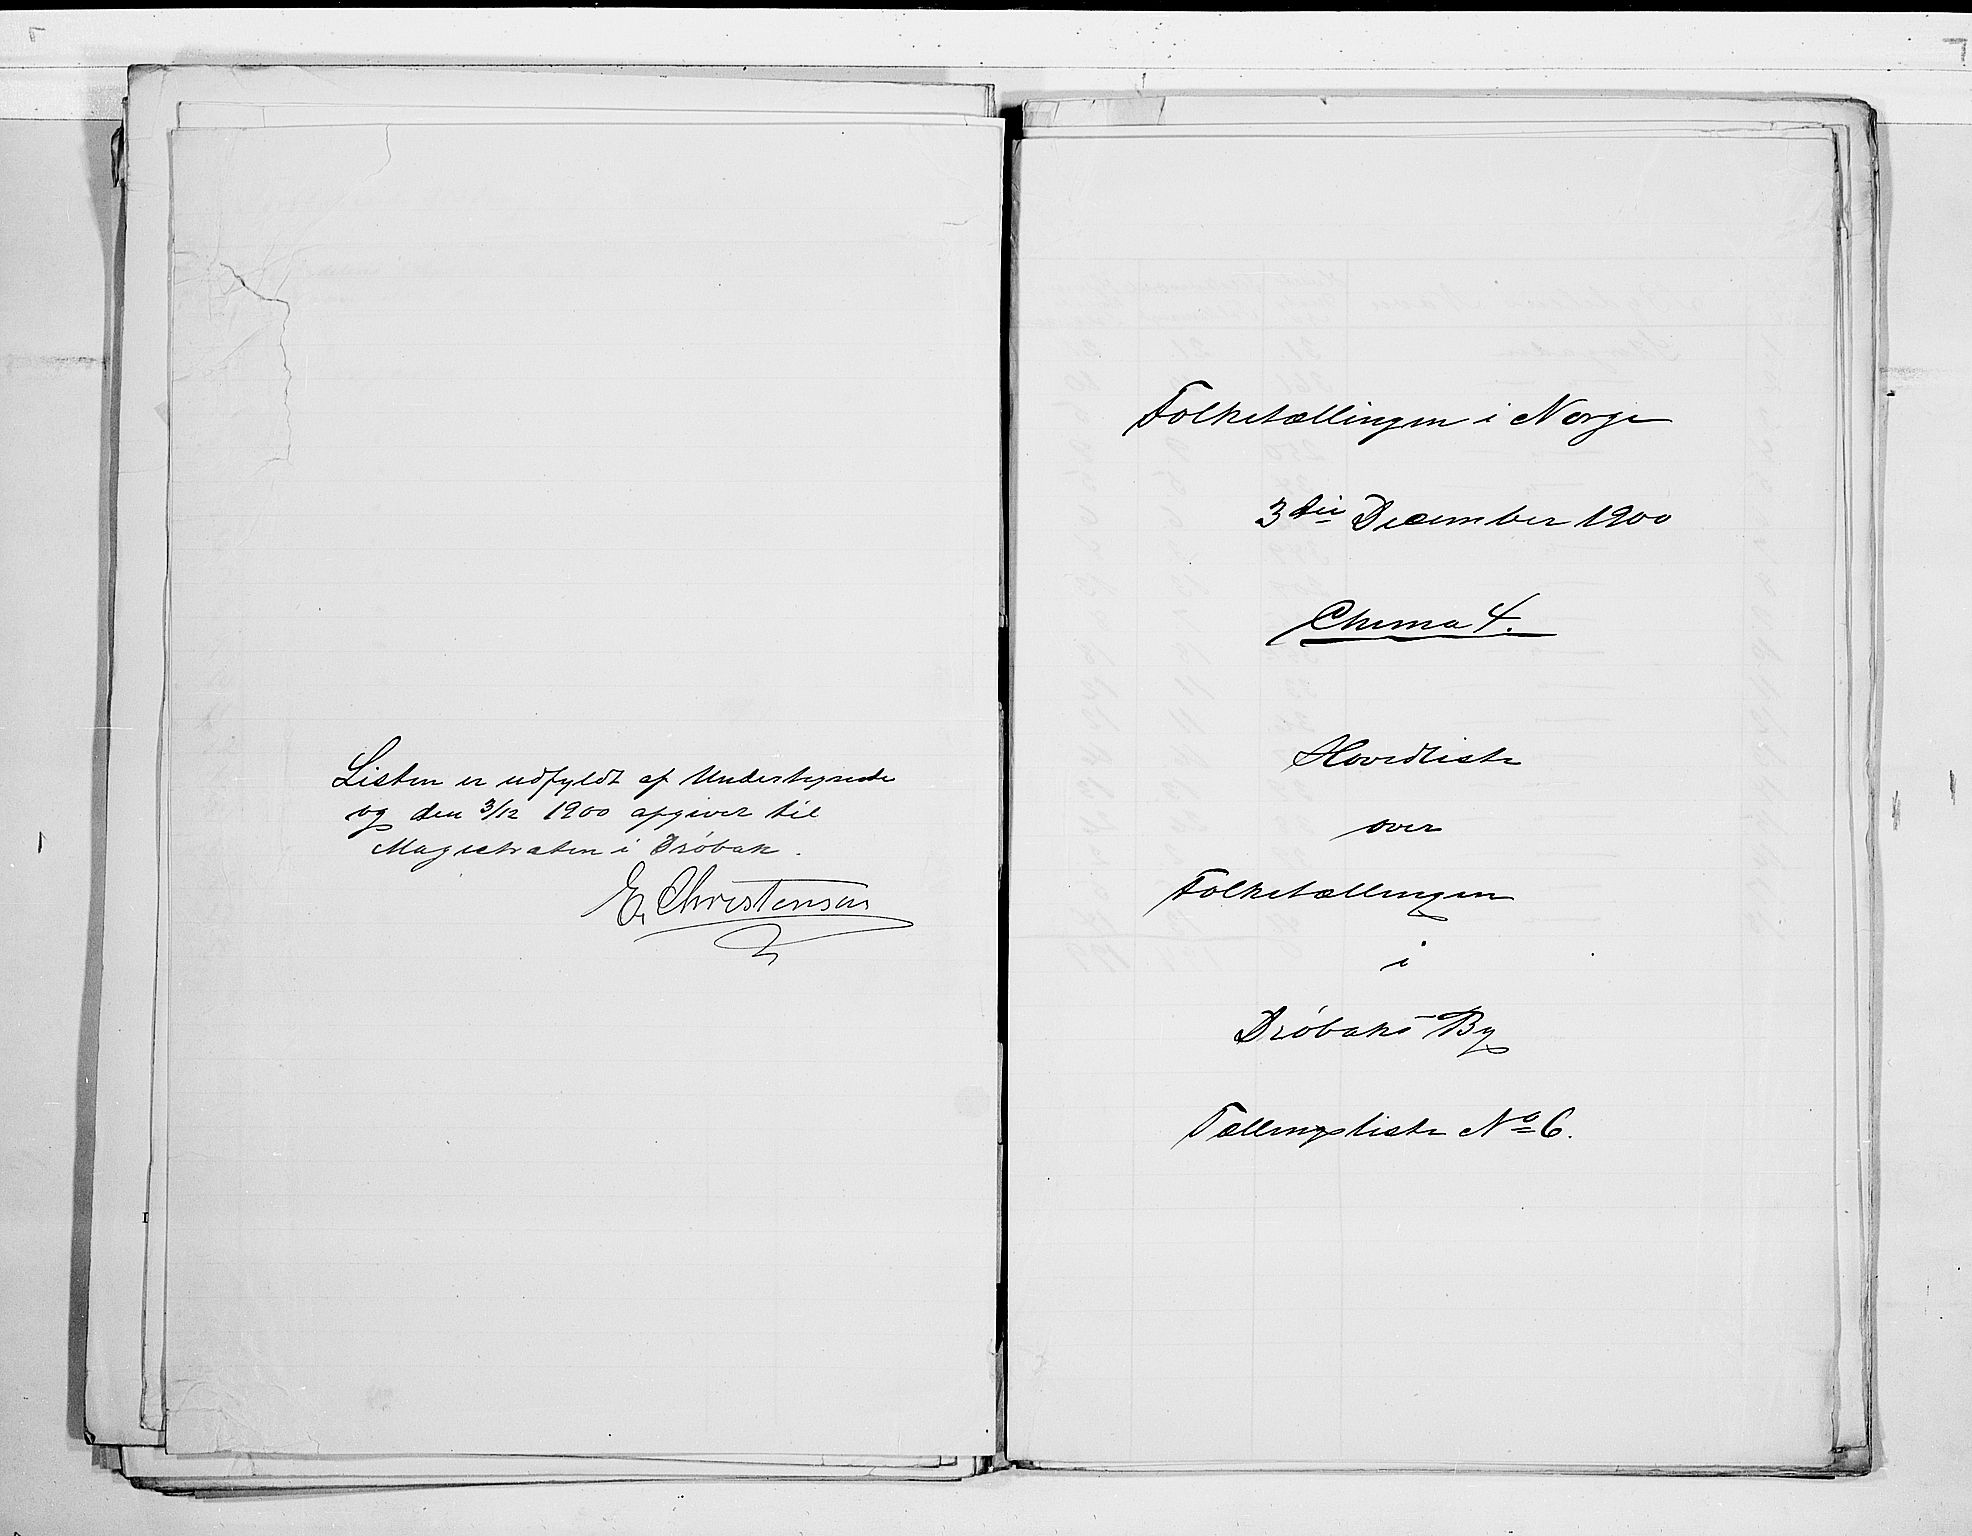 Listen er udfyldt af Undertegnede
og den 3/12 1900 afgivet til
Magistraten i Drøbak.
E. Christensen
Folketællingen i Norge
3die December 1900
Chema 4.
Hovedliste
over
Folketællingen
i
Drøbaks By
Tællingsliste No 6.